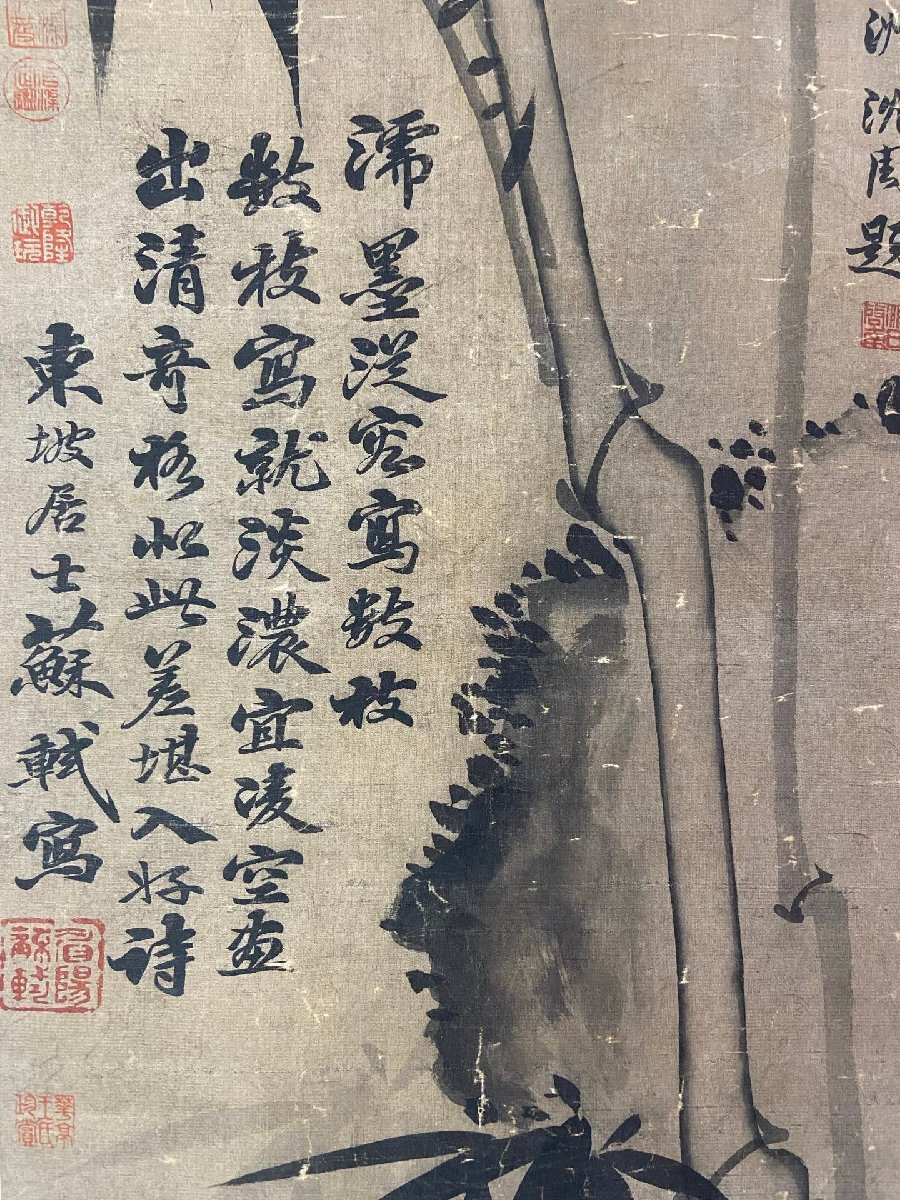 洲沈周題
濡墨從容寫數枝
數枝寫就淡濃宜凌空畫
出清奇格似此差堪入好詩
東坡居士蘇軾寫
眉陽蘇軾